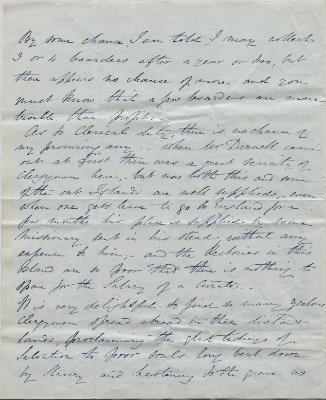 By some chance I am told, I may collect
3 or 4 boarders after a year or two, but
there appears no chance of more. and you
must know that a few boarders are more
trouble than profit.
As to Clerical duty, there is no chance of
my procuring any. - when Mr Darnell came
out at first there was a great scarcity of
Clergymen here, but now both this and some
of the out Islands are well supplied, even
when one gets leave to go to England for a
few months his place is supplied by some
missionary sent in his stead without any
expense to him; and the Rectories in this
Island are so poor that there is nothing to
spare for the Salary of a Curate.
It is very delightful to find so many zealous
Clergymen spread abroad in these distant
lands, proclaiming the glad tidings of
Salvation to poor souls long bent down
by Slavery and hastening to the grave as